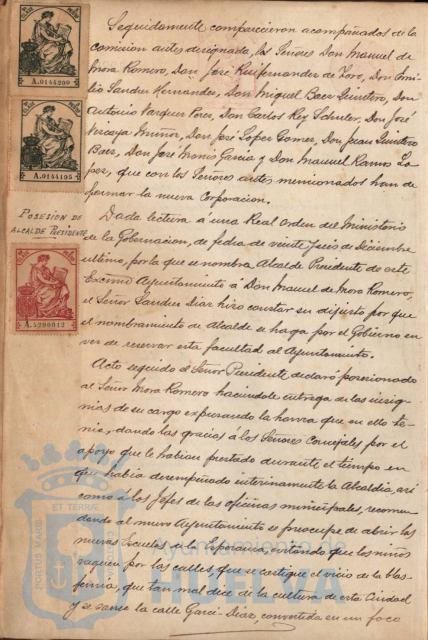 Seguidamente comparecieron acompañados de la
comision antes designada, los Señores Don Manuel de
Mora Romero, Don José Ruifernandez de Toro, Don Emi-
lio Sanden Hernandez, Don Miguel Baez Quintero, Don
Antonio Vazquez Perez, Don Carlos Rey Schuler, Don José
Muñoz, Don José Lopez Gomez, Don Juan Quintero
Baez, Don José Garcia y Don Manuel Ramos Lo-
pez, que con los Señores antes mencionados han de
formar la nueva Corporacion.
Dada lectura á una Real Orden del Ministerio
de la Gobernacion, de fecha de veinte seis de Diciembre
ultimo, por la que se nombra Alcalde Presidente de este
Excmo Ayuntamiento á Don Manuel de Mora Romero,
el Señor Diaz hizo constar su disgusto por que
el nombramiento de Alcalde se haga por el Gobierno en
vez de reservar esta facultad al Ayuntamiento.
Acto seguido el Señor Presidente declaró posesionado
al Señor Mora Romero haciendole entrega de las insig-
nias de su cargo expresando la honra que en ello te-
nia, dando las gracias á los Señores Concejales por el
apoyo que le habian prestado durante el tiempo en
que habia desempeñado interinamente la Alcaldia, asi
como á los Jefes de las oficinas municipales, recomen-
dando al nuevo Ayuntamiento se preocupe de abrir las
nuevas Escuelas de la Esperanza, evitando que los niños
vaguen por las calles, que se castigue el vicio de la blas-
femia, que tan mal dice de la cultura de esta Ciudad
y se sanee la calle Garci-Diaz, convertida en un foco
A.0144200
A.0144195
POSESION DE
ALCALDE PRESIDENTE
A.5290012
PORTUS MARIS ET TERRÆ CUSTODIA
Ayuntamiento de
HUELVA